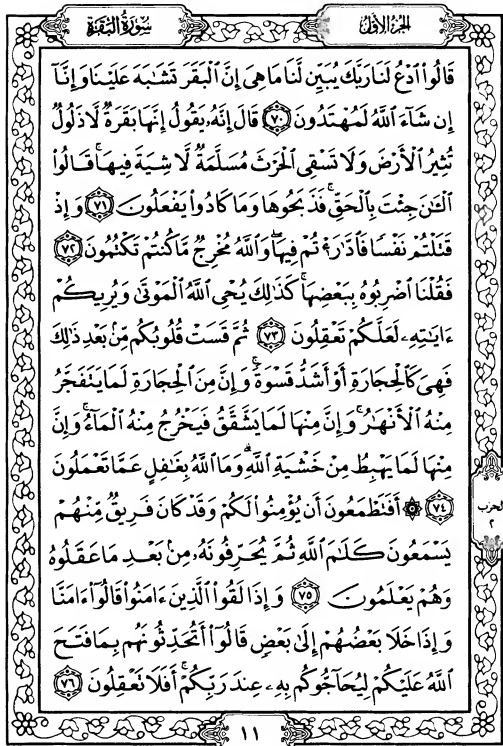 سُورَةُ البَقَرَةِ
الجزءُ الأوّل
قَالُوا۟ ٱدْعُ لَنَا رَبَّكَ يُبَيِّن لَّنَا مَا هِىَ إِنَّ ٱلْبَقَرَ تَشَـٰبَهَ عَلَيْنَا وَإِنَّآ
إِن شَآءَ ٱللَّهُ لَمُهْتَدُونَ ﴿٧٠﴾ قَالَ إِنَّهُۥ يَقُولُ إِنَّهَا بَقَرَةٌ لَّا ذَلُولٌ
تُثِيرُ ٱلْأَرْضَ وَلَا تَسْقِى ٱلْحَرْثَ مُسَلَّمَةٌ لَّا شِيَةَ فِيهَا ۚ قَالُوا۟
ٱلْـَٔـٰنَ جِئْتَ بِٱلْحَقِّ ۚ فَذَبَحُوهَا وَمَا كَادُوا۟ يَفْعَلُونَ ﴿٧١﴾ وَإِذْ
قَتَلْتُمْ نَفْسًا فَٱدَّٰرَْٰٔتُمْ فِيهَا ۖ وَٱللَّهُ مُخْرِجٌ مَّا كُنتُمْ تَكْتُمُونَ ﴿٧٢﴾
فَقُلْنَا ٱضْرِبُوهُ بِبَعْضِهَا ۚ كَذَٰلِكَ يُحْىِ ٱللَّهُ ٱلْمَوْتَىٰ وَيُرِيكُمْ
ءَايَـٰتِهِۦ لَعَلَّكُمْ تَعْقِلُونَ ﴿٧٣﴾ ثُمَّ قَسَتْ قُلُوبُكُم مِّنۢ بَعْدِ ذَٰلِكَ
فَهِىَ كَٱلْحِجَارَةِ أَوْ أَشَدُّ قَسْوَةً ۚ وَإِنَّ مِنَ ٱلْحِجَارَةِ لَمَا يَتَفَجَّرُ
مِنْهُ ٱلْأَنْهَـٰرُ ۚ وَإِنَّ مِنْهَا لَمَا يَشَّقَّقُ فَيَخْرُجُ مِنْهُ ٱلْمَآءُ ۚ وَإِنَّ
مِنْهَا لَمَا يَهْبِطُ مِنْ خَشْيَةِ ٱللَّهِ ۗ وَمَا ٱللَّهُ بِغَـٰفِلٍ عَمَّا تَعْمَلُونَ
﴿٧٤﴾ ۞ أَفَتَطْمَعُونَ أَن يُؤْمِنُوا۟ لَكُمْ وَقَدْ كَانَ فَرِيقٌ مِّنْهُمْ
الحزب
٢
يَسْمَعُونَ كَلَـٰمَ ٱللَّهِ ثُمَّ يُحَرِّفُونَهُۥ مِنۢ بَعْدِ مَا عَقَلُوهُ
وَهُمْ يَعْلَمُونَ ﴿٧٥﴾ وَإِذَا لَقُوا۟ ٱلَّذِينَ ءَامَنُوا۟ قَالُوٓا۟ ءَامَنَّا
وَإِذَا خَلَا بَعْضُهُمْ إِلَىٰ بَعْضٍ قَالُوٓا۟ أَتُحَدِّثُونَهُم بِمَا فَتَحَ
ٱللَّهُ عَلَيْكُمْ لِيُحَآجُّوكُم بِهِۦ عِندَ رَبِّكُمْ ۚ أَفَلَا تَعْقِلُونَ ﴿٧٦﴾
١١